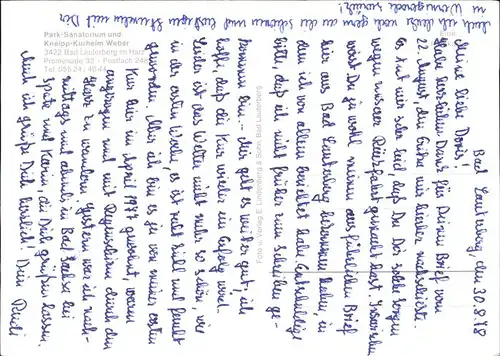 Park-Sanatorium und
Kneipp-Kurheim Weber
3422 Bad Lauterberg im Harz
Promenade 32 · Postfach 246
Tel. 05524/4044
Foto u. Verlag E. Lindenberg & Sohn, Bad Lauterberg
Bad Lauterberg, den 30.8.78
Meine liebe Doris!
Habe herzlichen Dank für Deinen Brief vom
22. August, den Erika mir hierher nachschickte.
Es tut mir sehr leid daß Du Dir solche Sorgen
wegen unserer Rückfahrt gemacht hast. Inzwischen
wirst Du ja wohl meinen ausführlichen Brief
hier aus Bad Lauterberg bekommen haben, in
dem ich vor allem berichtet habe. Entschuldige
bitte, daß ich nicht früher zum Schreiben ge-
kommen bin – hier geht es weiter gut, ich
hoffe, daß die Kur wieder ein Erfolg wird.
Leider ist das Wetter nicht mehr so schön, wie
in der ersten Woche, es ist recht kühl und feucht
geworden. Aber ich bin es ja von meiner ersten
Kur hier im April 1977 gewohnt, warm
angezogen und mit Regenschirm durch den
Harz zu wandern. Gestern war ich nach-
mittags und abends in Bad Sachsa bei
Späte und Karin, die Dich grüßen lassen.
Auch ich grüße Dich herzlich! Dein Rudi
Auch ich denke noch gern an die schönen und lustigen Stunden mit Dir
in Wernigerode zurück!